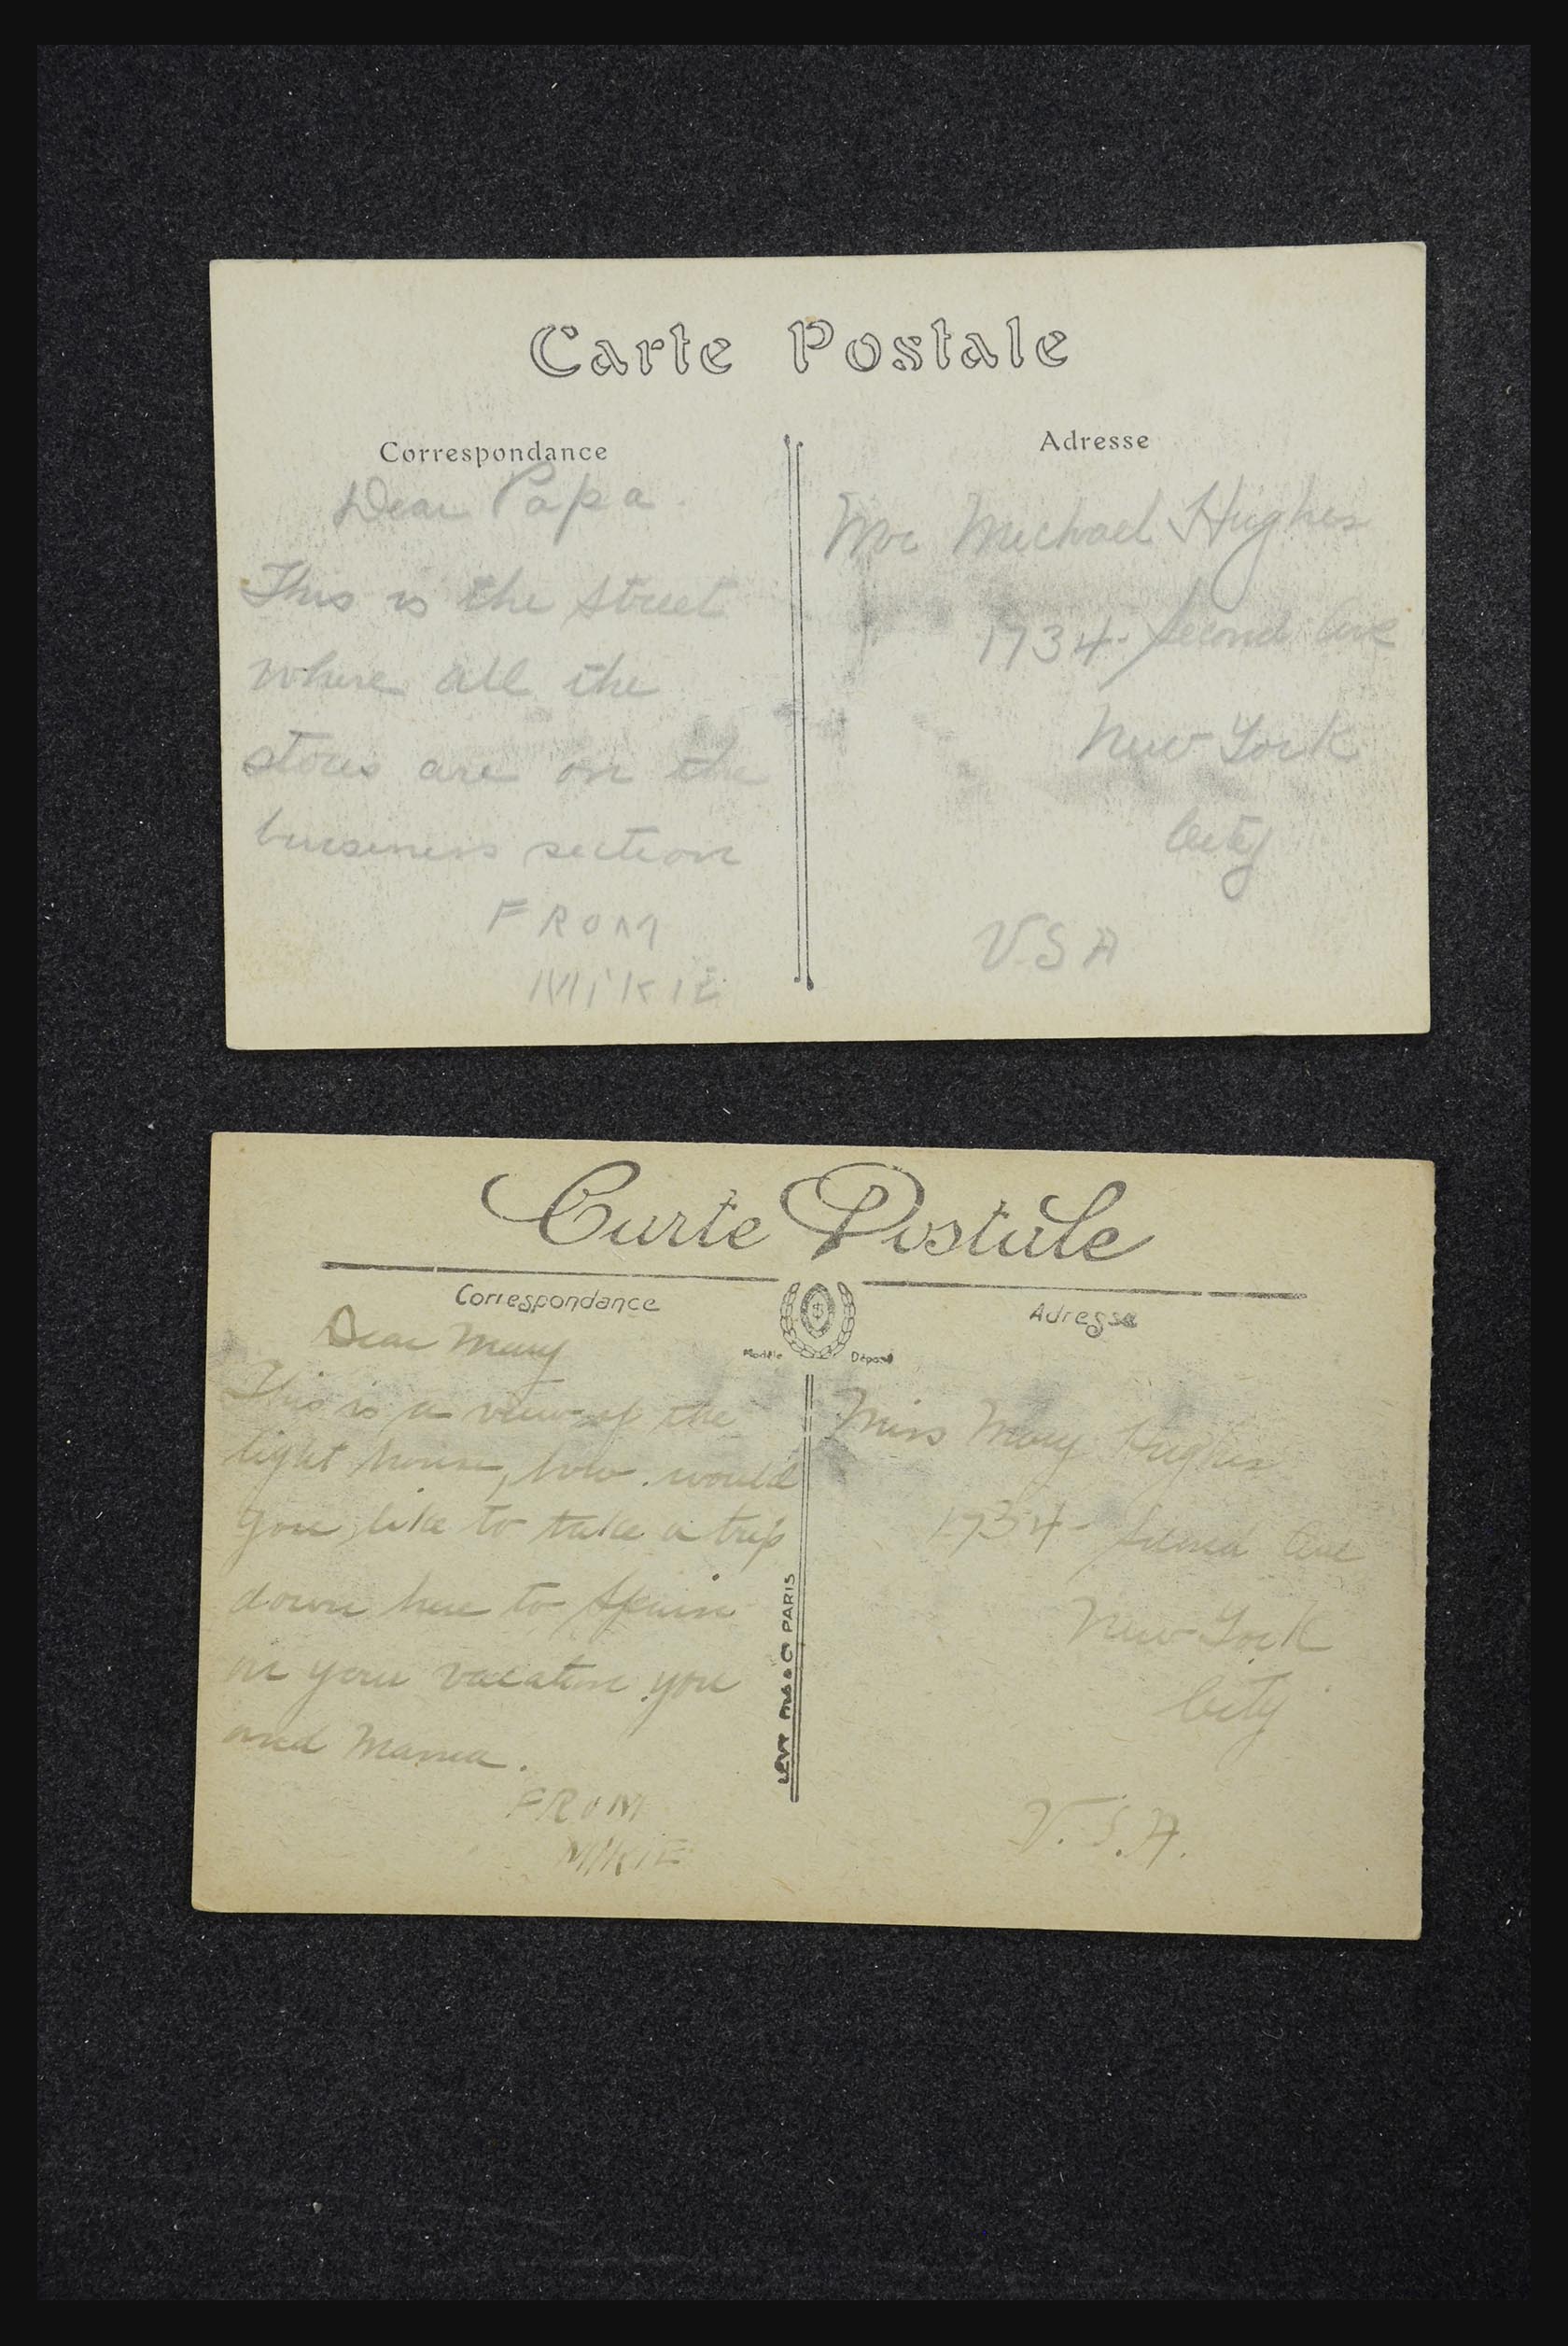 Carte Postale
Correspondance
Dear Papa.
This is the street
where all the
stores are on the
business section
FROM
MIKIE
Adresse
Mr Michael Hughes
1734- Second Ave
New York
City
USA
Carte Postale
Correspondance
Dear Mary
This is a view of the
light house, how would
you like to take a trip
down here to Spain
on your vacation you
and Mama.
FROM
MIKIE
Modèle Déposé
LEVY FILS & Cie PARIS
Adresse
Miss Mary Hughes
1734- Second Ave
New York
City
U.S.A.